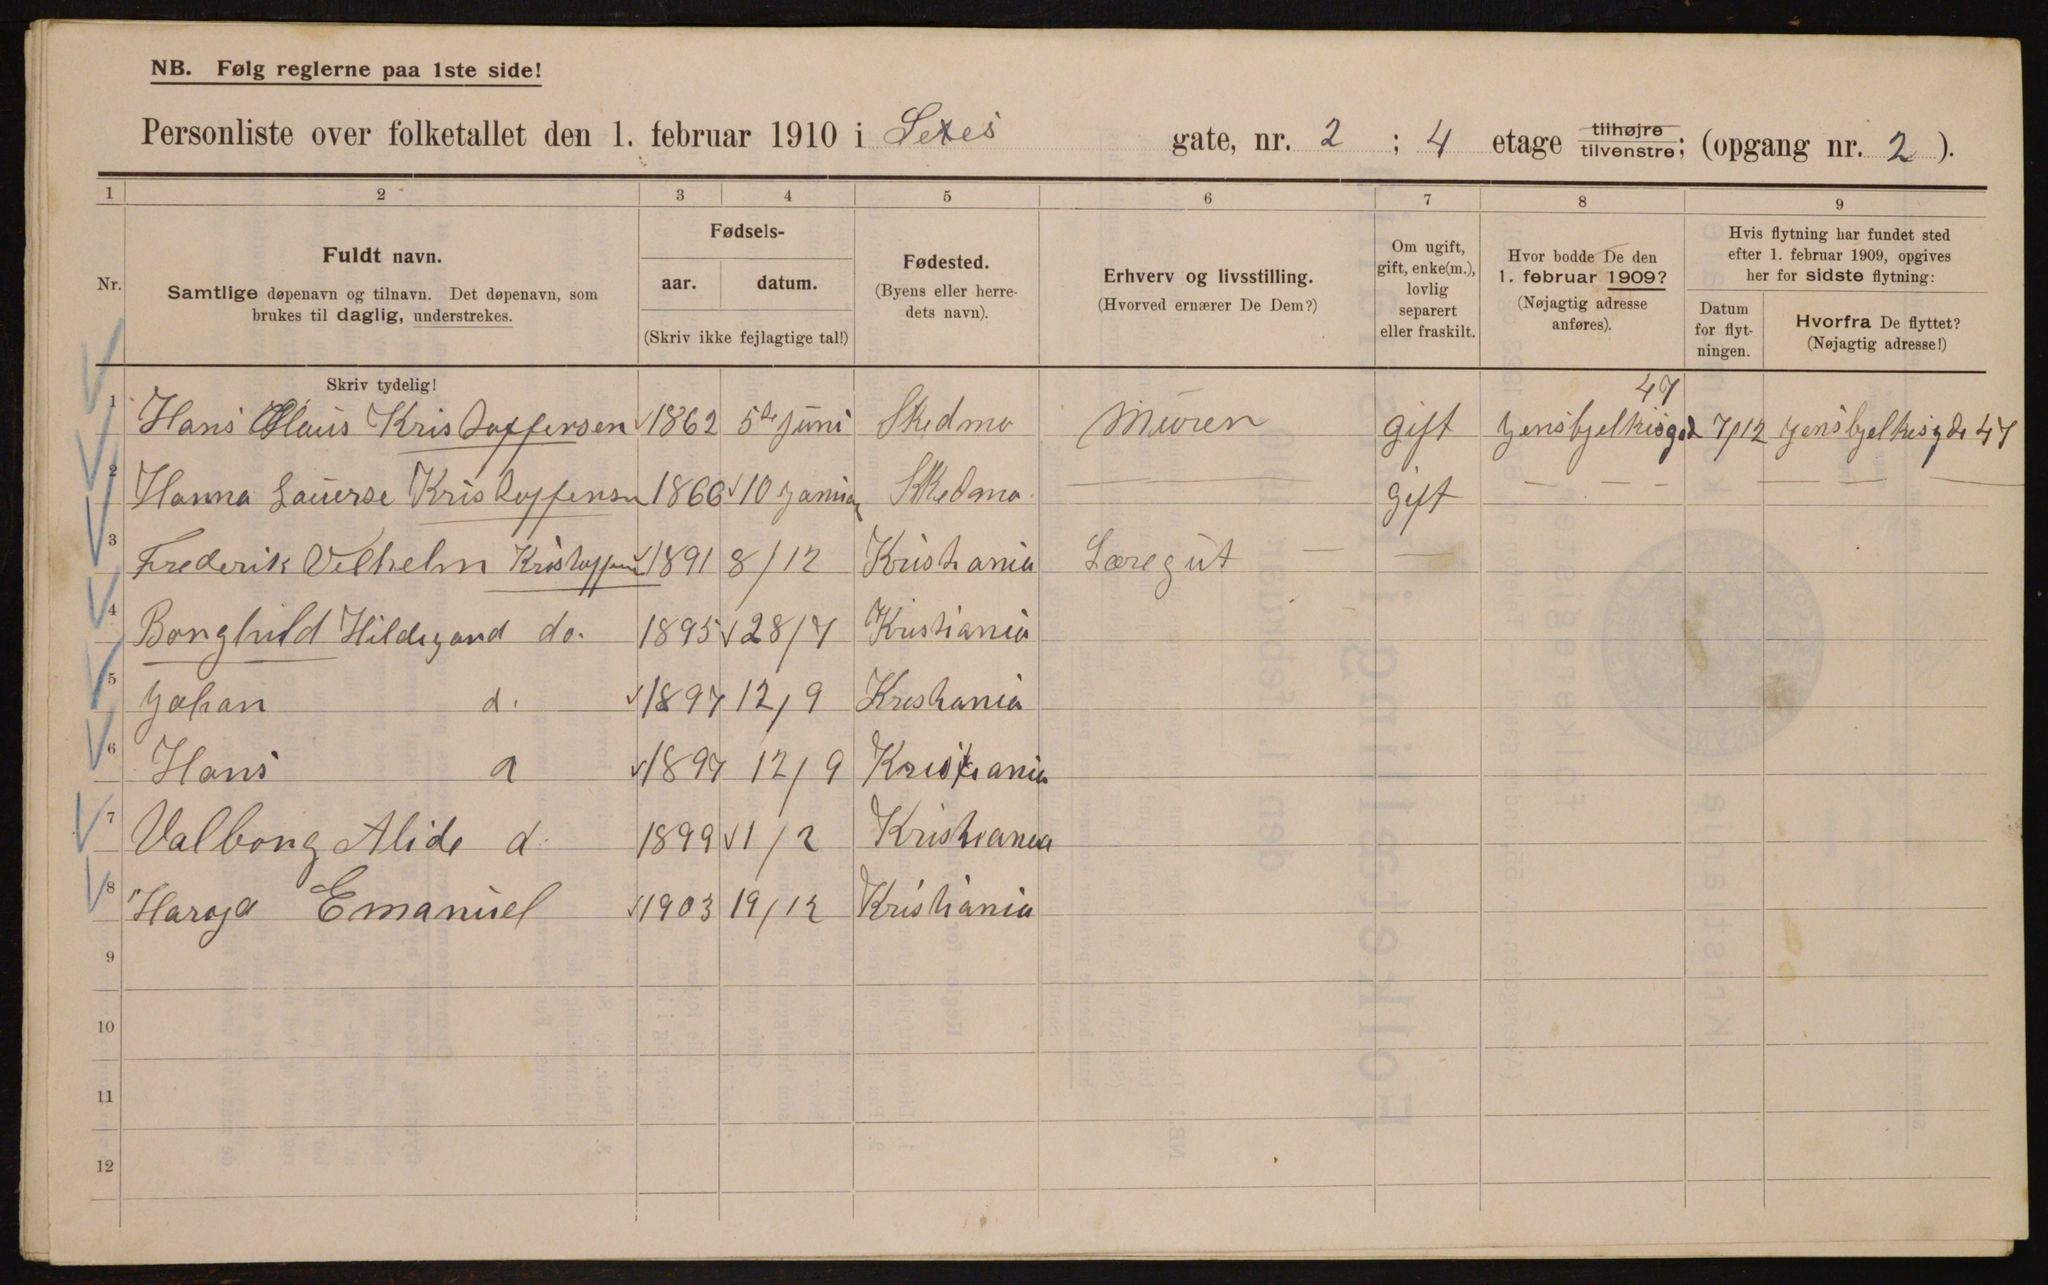 NB. Følg reglerne paa 1ste side!
Personliste over folketallet den 1. februar 1910 i Sexes gate, nr. 2 ; 4 etage tilhøjre tilvenstre; (opgang nr. 2 ).
1 2 3 4 5 6 7 8 9
Nr.
Fuldt navn.
Samtlige døpenavn og tilnavn. Det døpenavn, som
brukes til daglig, understrekes.
Skriv tydelig!
Fødsels-
aar. datum.
(Skriv ikke fejlagtige tal!)
Fødested.
(Byens eller herre-
dets navn).
Erhverv og livsstilling.
(Hvorved ernærer De Dem?)
Om ugift,
gift, enke(m.),
lovlig
separert
eller fraskilt.
Hvor bodde De den
1. februar 1909?
(Nøjagtig adresse
anføres).
Hvis flytning har fundet sted
efter 1. februar 1909, opgives
her for sidste flytning:
Datum
for flyt-
ningen.
Hvorfra De flyttet?
(Nøjagtig adresse!)
47
1 Hans Claus Kristoffersen 1862 5te juni Skedmo Muren gift 7/12 47
2 Hanna Lauerse Kristoffensn 1866 10 Skedmo — gift — — — — — —
3 Frederik Vilhelm 1891 8/12 Kristiania Læregut — —
4 Borghild Hildegand do. 1895 28/7 Kristiania
5 Johan d. 1897 12/9 Kristiania
6 Hans d 1897 12/9 Kristiania
7 Valborg Alide d. 1899 1/2 Kristiania
8 Emanuel 1903 19/12 Kristiania
9
10
11
12